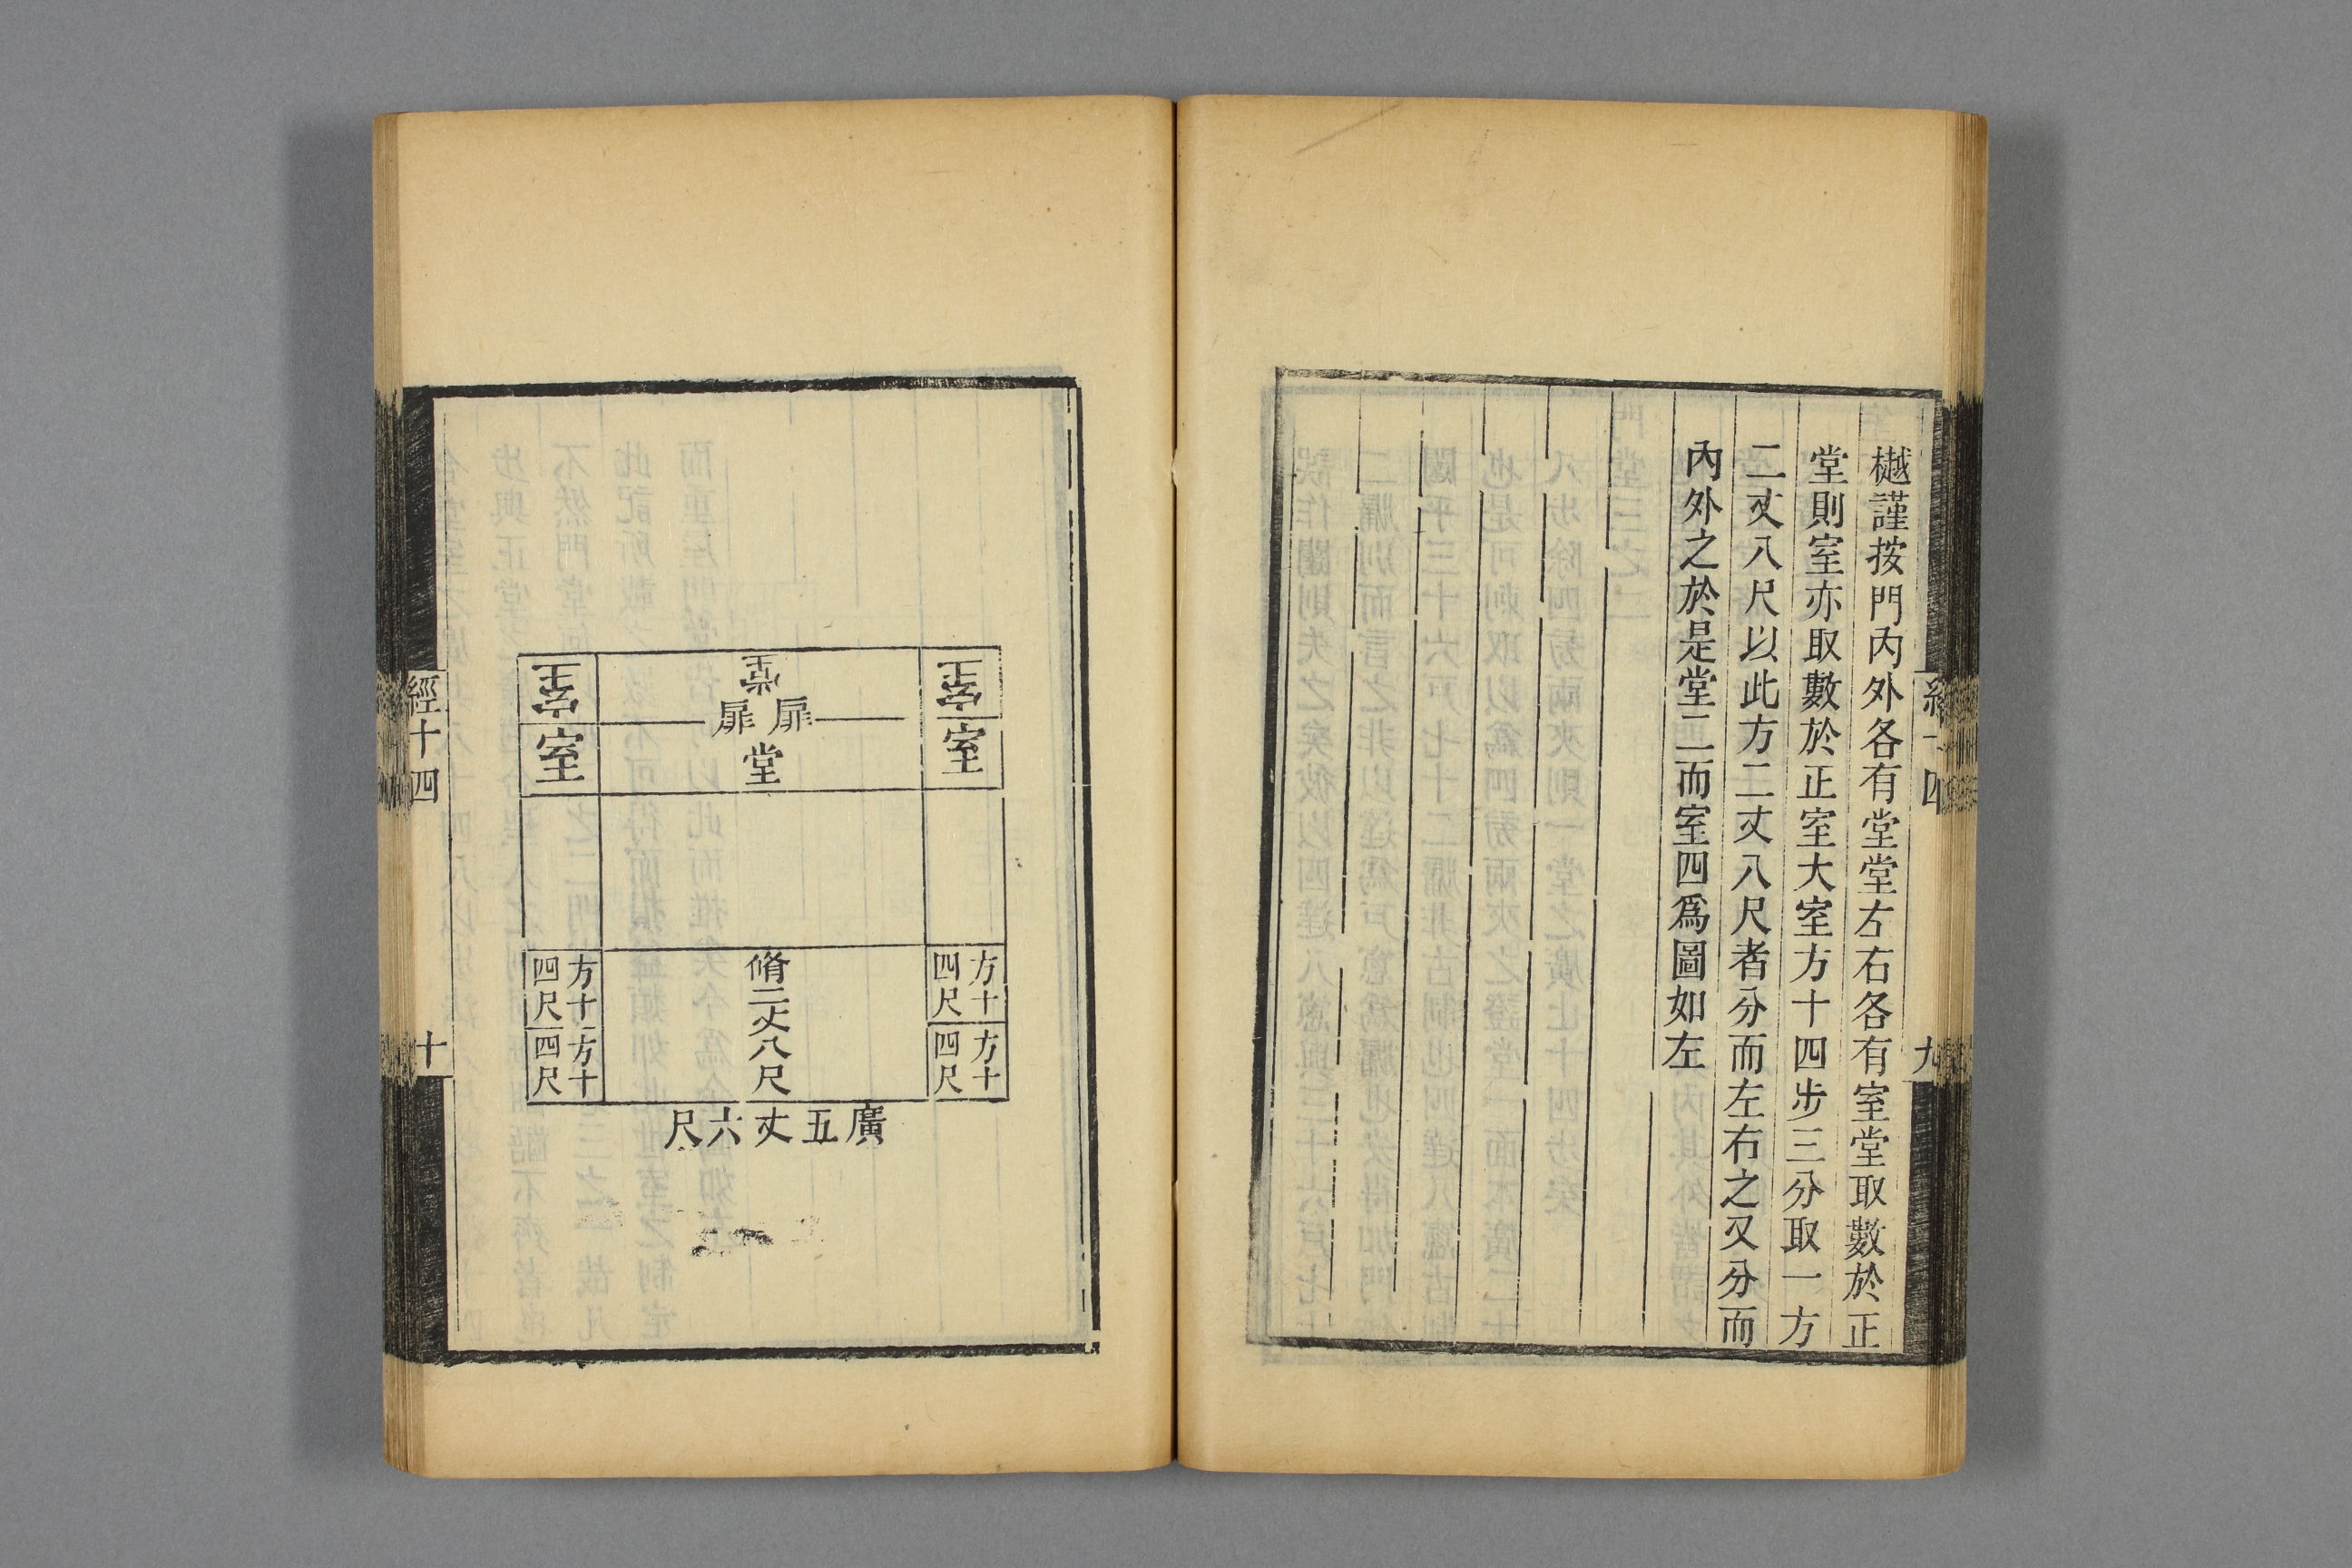 樾謹按門內外各有堂堂左右各有室堂取數於正
堂則室亦取數於正室大室方十四步三分取一方
二丈八尺以此方二丈八尺者分而左右之又分而
內外之於是堂二而室四爲圖如左
經十四
九
室
堂
室
扉
扉
室
堂
室
方十四尺
脩二丈八尺
方十四尺
方十四尺
方十四尺
廣五丈六尺
經十四
十